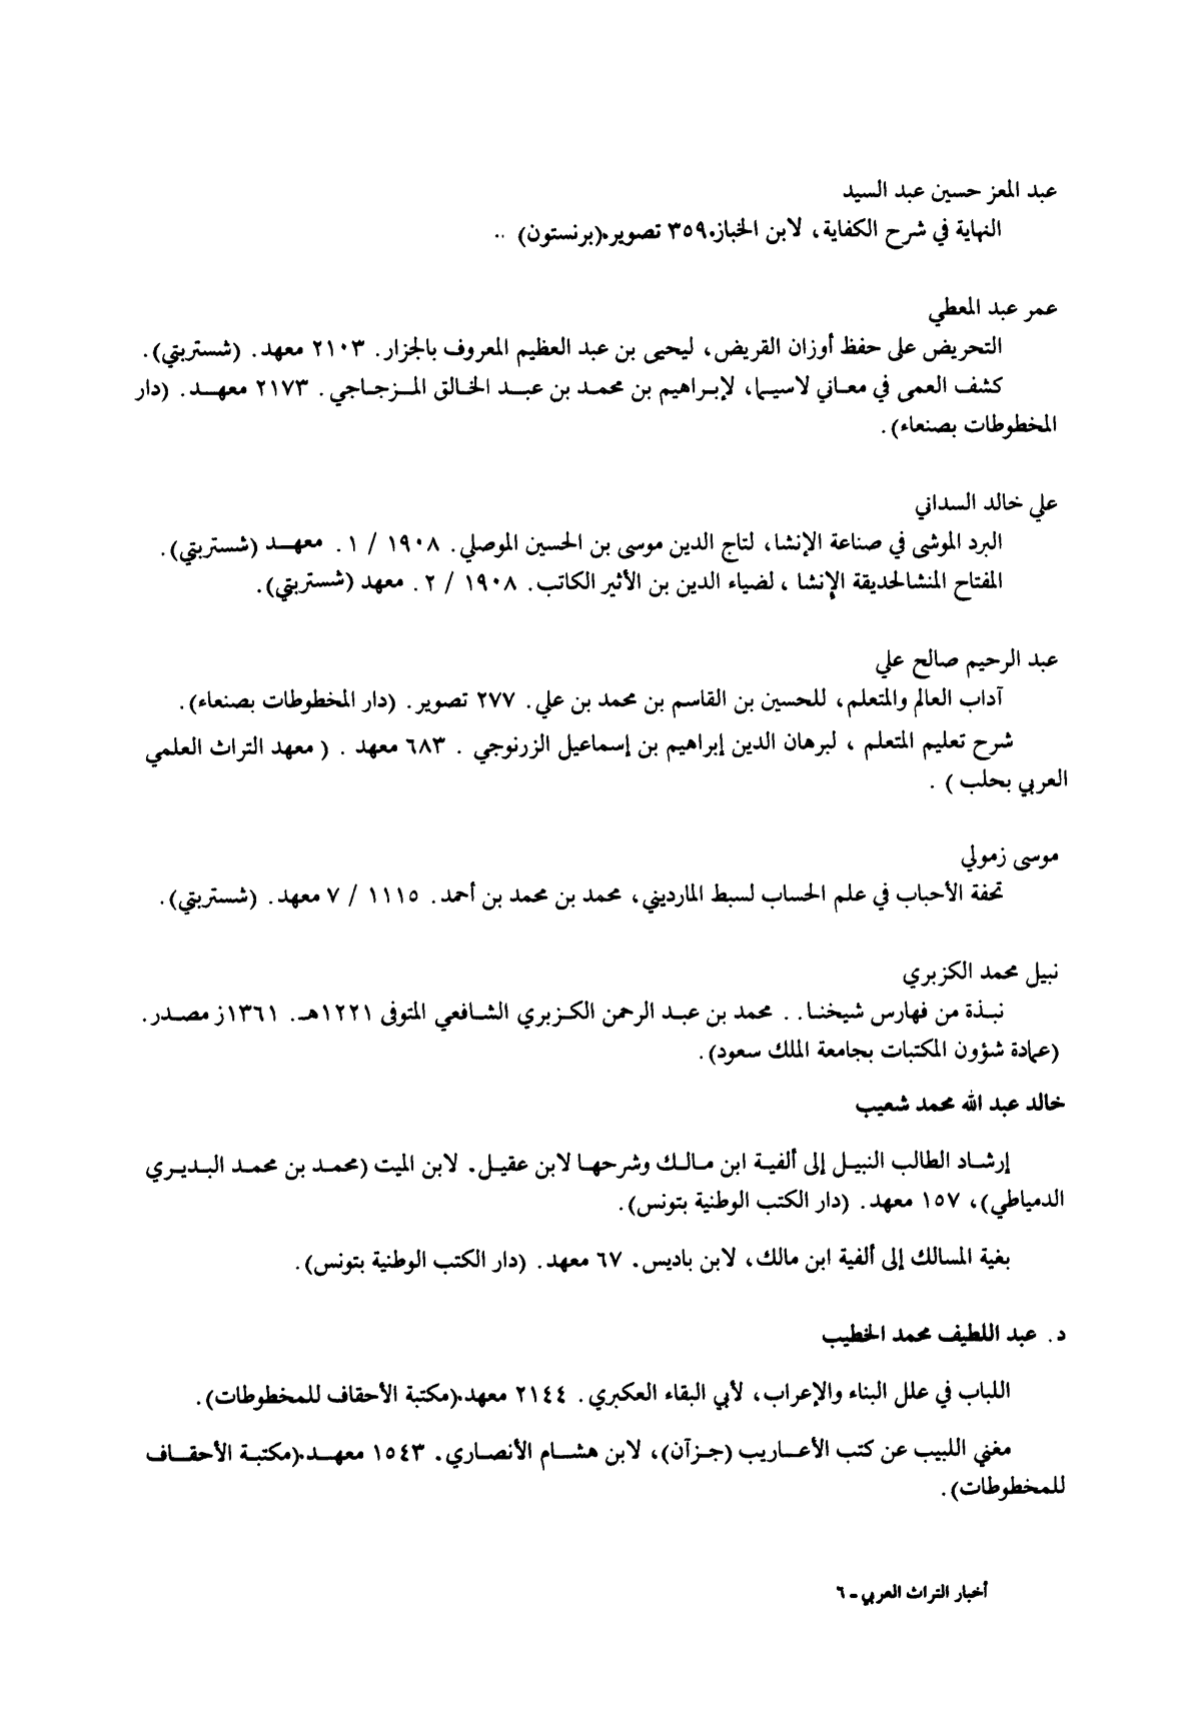 عبد المعز حسين عبد السيد
النهاية في شرح الكفاية، لابن الخباز. ٣٥٩ تصوير. (برنستون) ..
عمر عبد المعطي
التحريض على حفظ أوزان القريض، ليحيى بن عبد العظيم المعروف بالجزار. ٢١٠٣ معهد. (شستربتي).
كشف العمى في معاني لاسيما، لإبراهيم بن محمد بن عبد الخالق المزجاجي. ٢١٧٣ معهد. (دار
المخطوطات بصنعاء).
علي خالد السداني
البرد الموشى في صناعة الإنشا، لتاج الدين موسى بن الحسين الموصلي. ١٩٠٨ / ١. معهد (شستربتي).
المفتاح المنشالحديقة الإنشا ، لضياء الدين بن الأثير الكاتب. ١٩٠٨ / ٢. معهد (شستربتي).
عبد الرحيم صالح علي
آداب العالم والمتعلم، للحسين بن القاسم بن محمد بن علي. ٢٧٧ تصوير. (دار المخطوطات بصنعاء).
شرح تعليم المتعلم ، لبرهان الدين إبراهيم بن إسماعيل الزرنوجي . ٦٨٣ معهد . ( معهد التراث العلمي
العربي بحلب ) .
موسى زمولي
تحفة الأحباب في علم الحساب لسبط المارديني، محمد بن محمد بن أحمد. ١١١٥ / ٧ معهد. (شستربتي).
نبيل محمد الكزبري
نبذة من فهارس شيخنا. . محمد بن عبد الرحمن الكزبري الشافعي المتوفى ١٢٢١هـ. ١٣٦١ز مصدر.
(عمادة شؤون المكتبات بجامعة الملك سعود).
خالد عبد الله محمد شعيب
إرشاد الطالب النبيل إلى ألفية ابن مالك وشرحها لابن عقيل. لابن الميت (محمد بن محمد البديري
الدمياطي)، ١٥٧ معهد. (دار الكتب الوطنية بتونس).
بغية المسالك إلى ألفية ابن مالك، لابن باديس. ٦٧ معهد. (دار الكتب الوطنية بتونس).
د. عبد اللطيف محمد الخطيب
اللباب في علل البناء والإعراب، لأبي البقاء العكبري. ٢١٤٤ معهد. (مكتبة الأحقاف للمخطوطات).
مغني اللبيب عن كتب الأعاريب (جزآن)، لابن هشام الأنصاري. ١٥٤٣ معهد. (مكتبة الأحقاف
للمخطوطات).
أخبار التراث العربي - ٦